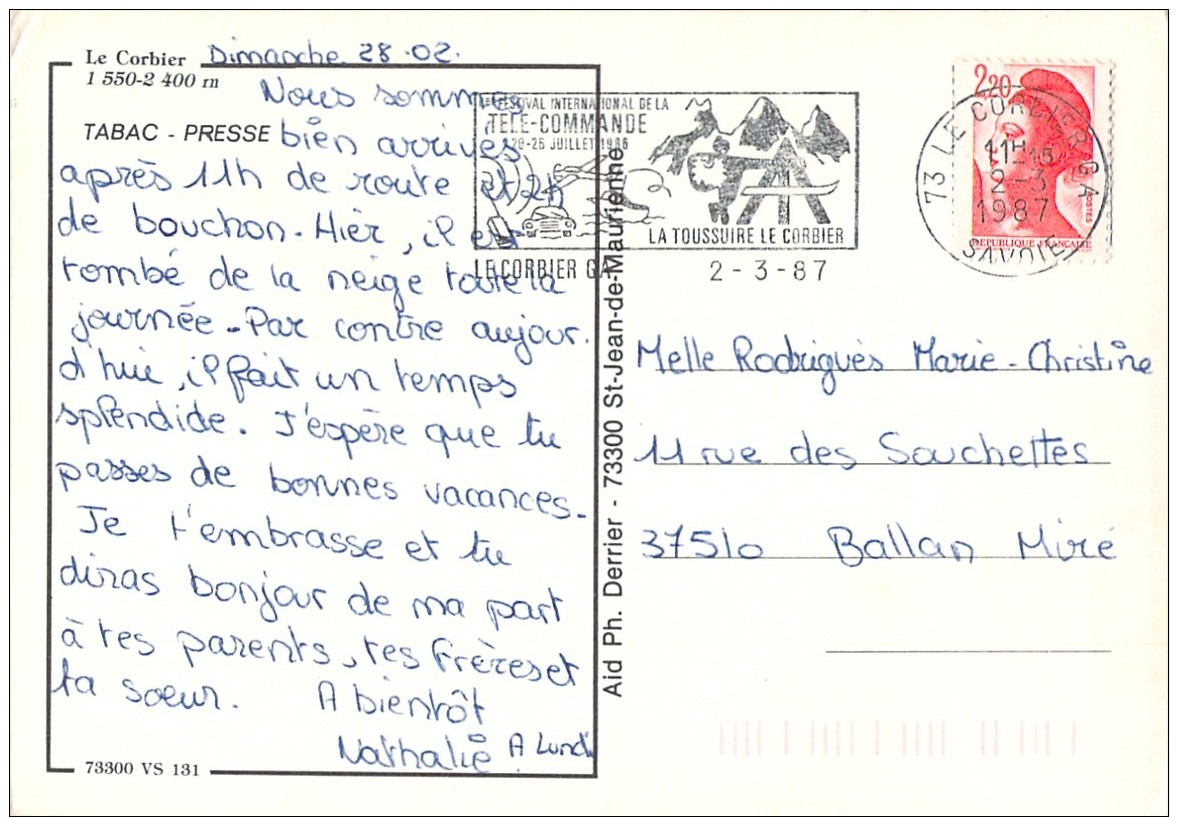 Le Corbier Dimanche 28.02.
1 550-2 400 m
Nous sommes
TABAC - PRESSE bien arrivés
après 11h de route et 2h
de bouchon. Hier, il est
tombé de la neige toute la
journée. Par contre aujour.
d'hui, il fait un temps
splendide. J'espère que tu
passes de bonnes vacances.
Je t'embrasse et tu
diras bonjour de ma part
à tes parents, tes frères et
ta soeur. A bientôt
Nathalie A Lundi
73300 VS 131
Aid Ph. Derrier - 73300 St-Jean-de-Maurienne
FESTIVAL INTERNATIONAL DE LA
TELE-COMMANDE
20-26 JUILLET 1986
LA TOUSSUIRE LE CORBIER
LE CORBIER G.A.
2-3-87
2,20
POSTES
REPUBLIQUE FRANCAISE
73 LE CORBIER G.A
11H15
2-3
1987
SAVOIE
Melle Rodrigues Marie-Christine
11 rue des Souchettes
37510 Ballan Miré